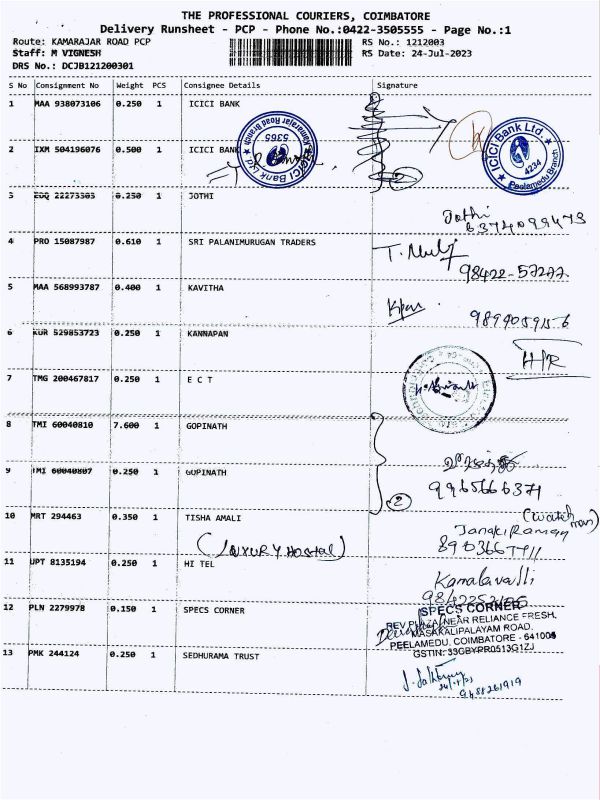 THE PROFESSIONAL COURIERS, COIMBATORE
Delivery Runsheet - PCP - Phone No.:0422-3505555 - Page No.:1
Route: KAMARAJAR ROAD PCP RS No.: 1212003
Staff: M VIGNESH RS Date: 24-Jul-2023
DRS No.: DCJB121200301
S No Consignment No Weight PCS Consignee Details Signature
1 MAA 938073106 0.250 1 ICICI BANK
ICICI Bank Ltd. Kamarajar Road Branch 5365
ICICI Bank Ltd. 4234 Peelamedu Branch
2 IXM 504196076 0.500 1 ICICI BANK
2
3 EUQ 22273303 0.250 1 JOTHI
Jothi
6374099473
4 PRO 15087987 0.610 1 SRI PALANIMURUGAN TRADERS
98422-57277
5 MAA 568993787 0.400 1 KAVITHA
9894059156
6 KUR 529853723 0.250 1 KANNAPAN
H/R
7 TMG 200467817 0.250 1 E C T
8 TMI 60040810 7.600 1 GOPINATH
9 TMI 60040807 0.250 1 GOPINATH
9965666371
2
10 MRT 294463 0.350 1 TISHA AMALI
(watch man)
Janaki Raman
(LUXURY HOSTAL)
11 UPT 8135194 0.250 1 HI TEL
Kamalavalli
12 PLN 2279978 0.150 1 SPECS CORNER
SPECS CORNER
REV PLAZA, NEAR RELIANCE FRESH,
MASAKALIPALAYAM ROAD,
PEELAMEDU, COIMBATORE - 641004
GSTIN: 33GBYPR0513G1ZJ
13 PMK 244124 0.250 1 SEDHURAMA TRUST